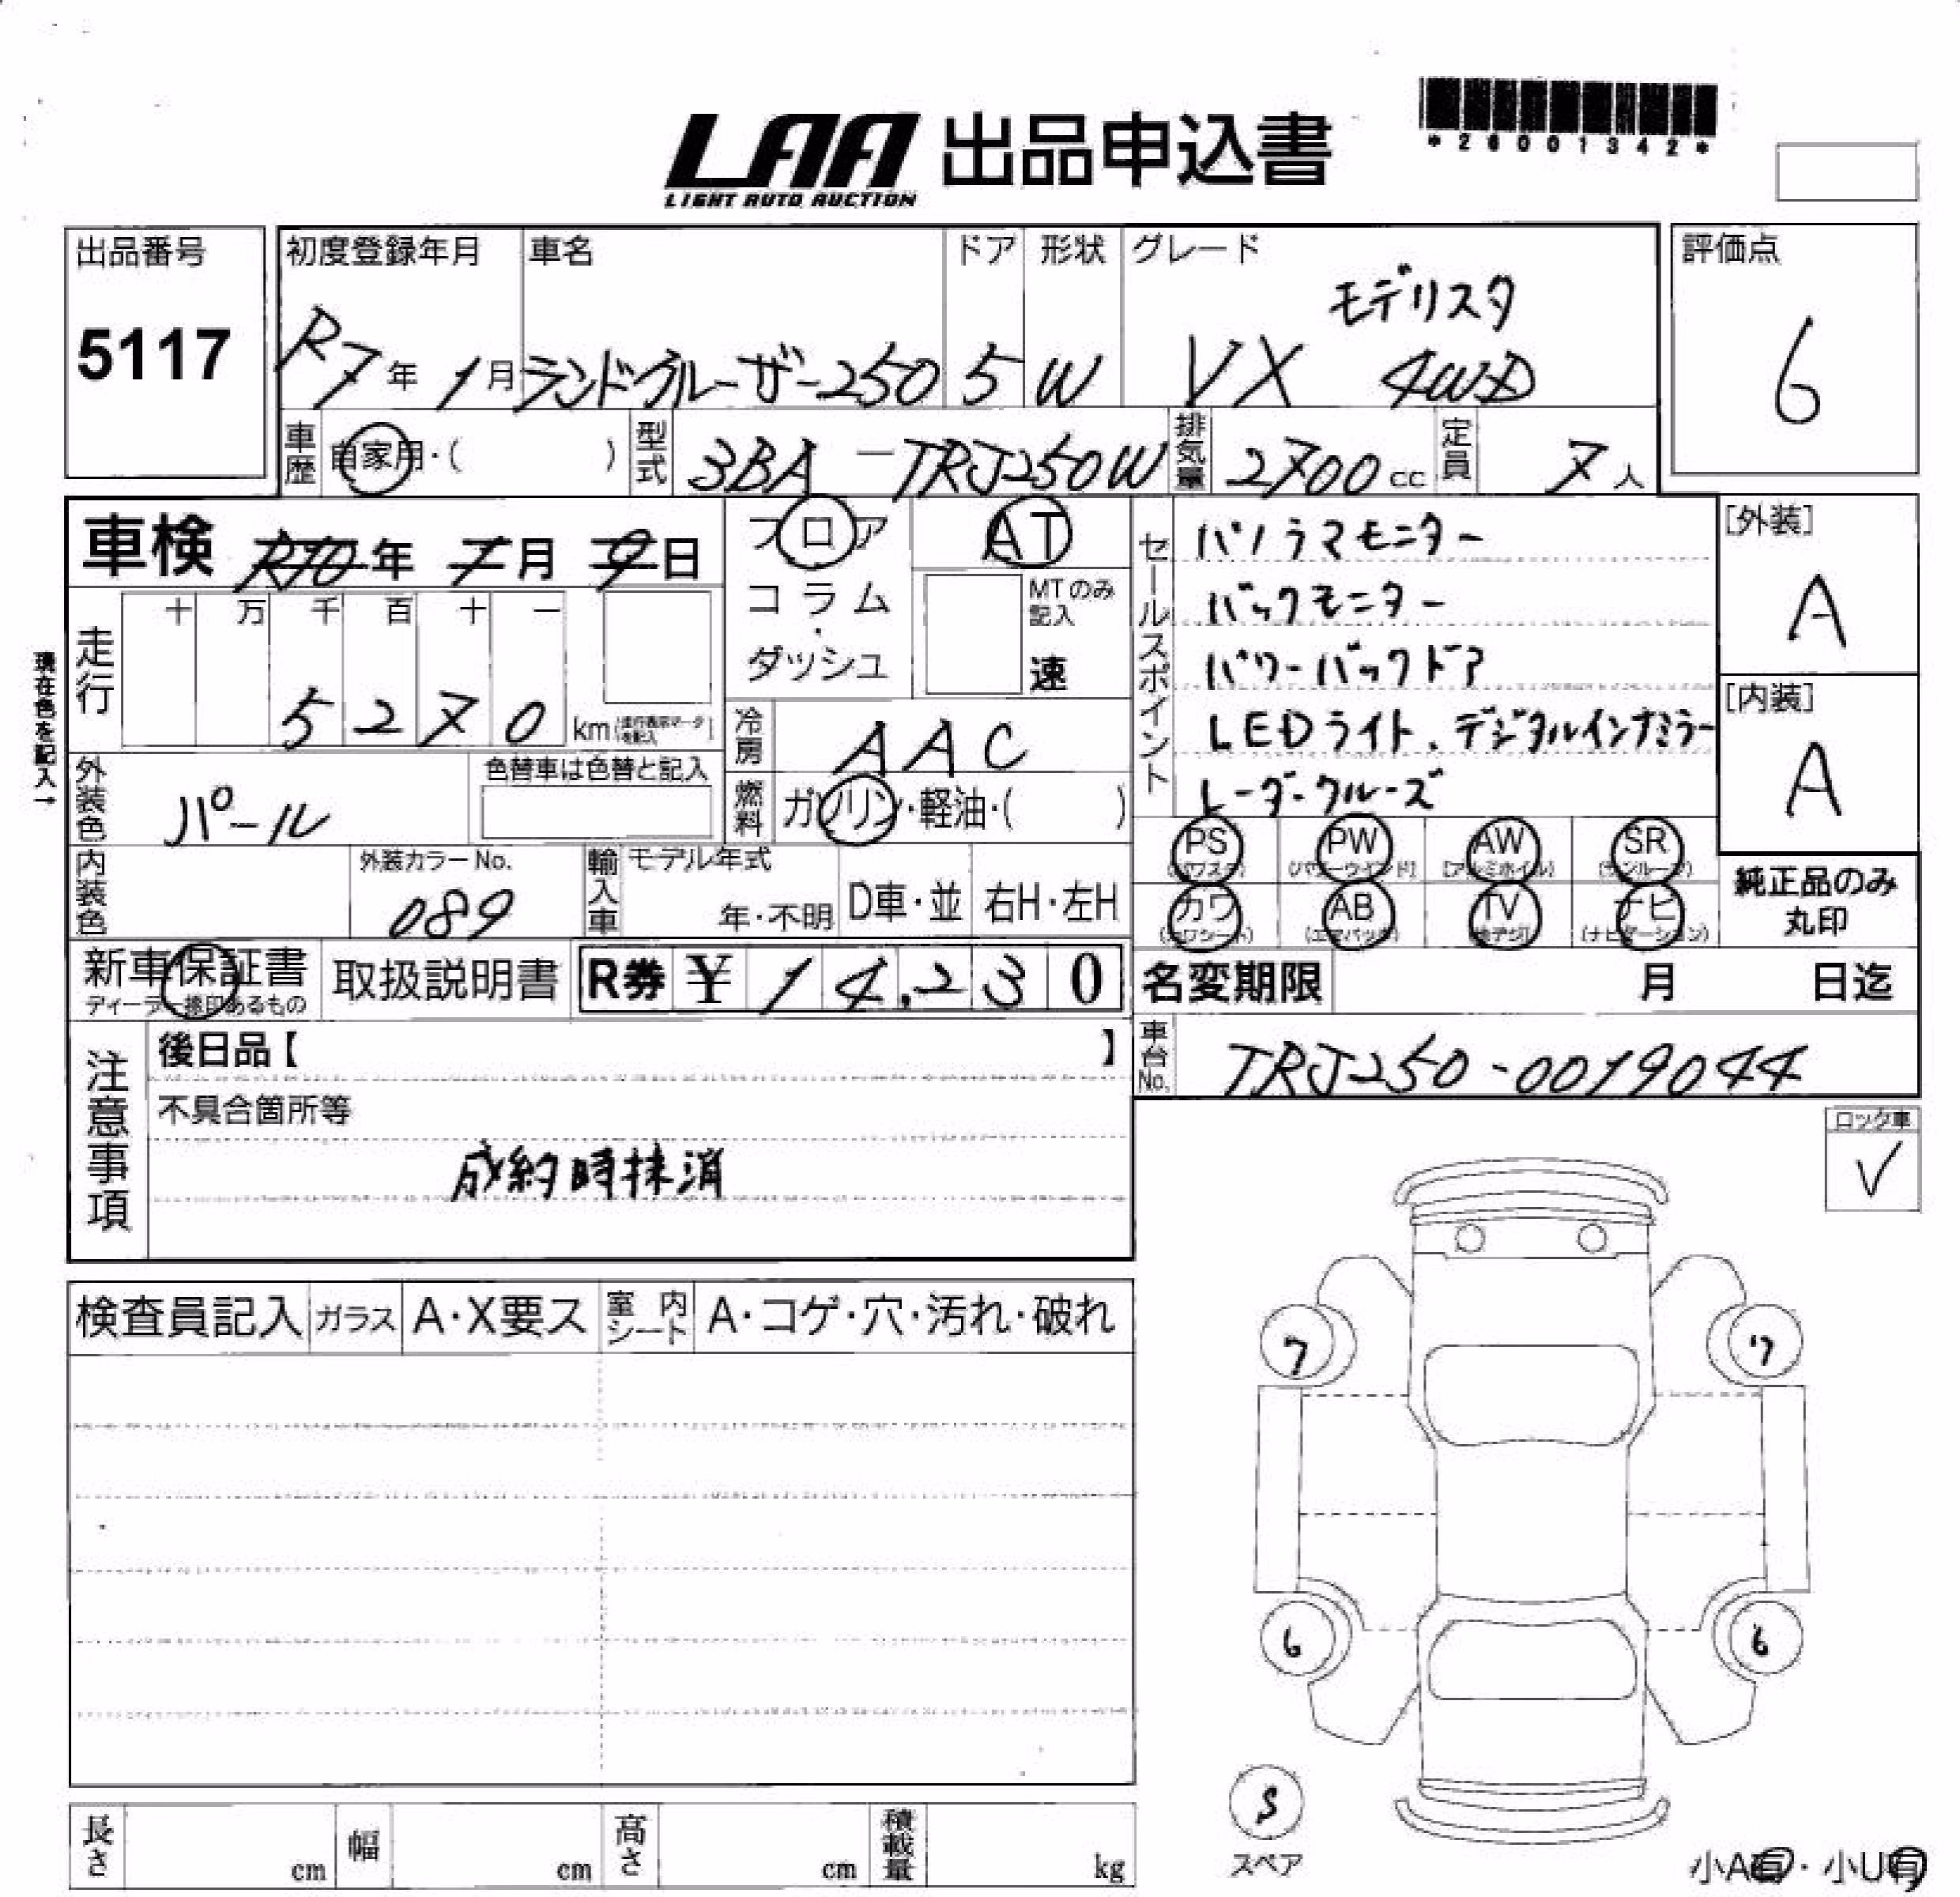 LAA 出品申込書
LIGHT AUTO AUCTION
*26001342*
出品番号
5117
初度登録年月
R7年 1月
車名
ランドクルーザー250
ドア
5
形状
W
グレード
モデリスタ
VX 4WD
評価点
6
車歴 自家用・( )
型式 3BA-TRJ250W
排気量 2700cc
定員 7人
車検 R10年 7月 9日
フロア
コラム
・
ダッシュ
AT
MTのみ
記入
速
セールスポイント
パノラマモニター
バックモニター
パワーバックドア
LEDライト、デジタルインナミラー
レーダークルーズ
[外装]
A
[内装]
A
現在色を記入→
走行
十 万 千 百 十 一
5 2 7 0 km
冷房 AAC
燃料 ガソリン・軽油・( )
外装色 パール
色替車は色替と記入
PS PW AW SR
(パワステ) (パワーウインド) [アルミホイル] (サンルーフ)
カワ AB TV ナビ
(カワシート) (エアバック) (地デジ) (ナビゲーション)
純正品のみ
丸印
内装色
外装カラーNo.
089
輸入車
モデル年式
年・不明
D車・並
右H・左H
新車保証書
ディーラー捺印あるもの
取扱説明書
R券 ¥ 14,230
名変期限 月 日迄
車台No. TRJ250-0019044
注意事項
後日品【 】
不具合箇所等
成約時抹消
ロック車
✓
検査員記入 ガラス A・X要ス 室内シート A・コゲ・穴・汚れ・破れ
7 7
6 6
S
スペア
長さ cm 幅 cm 高さ cm 積載量 kg
小A有・小U有